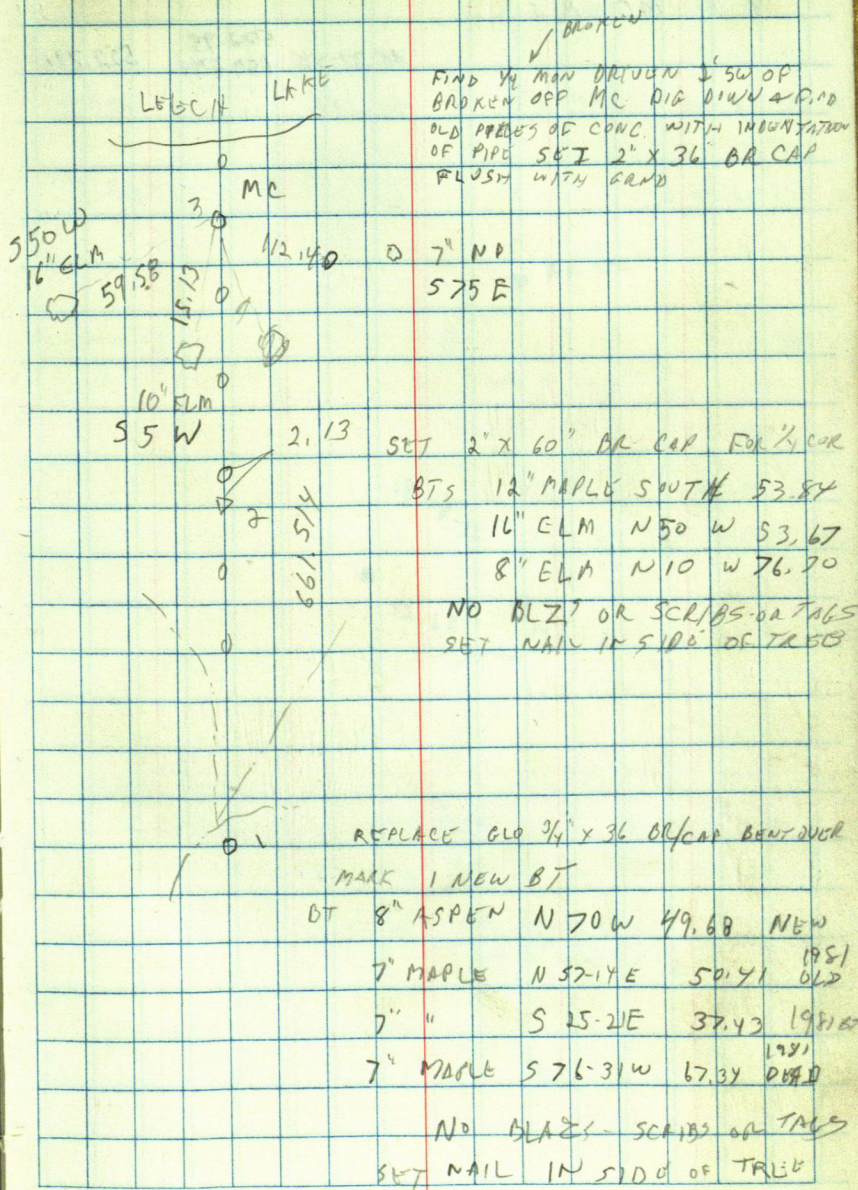 BROKEN
LEECH LAKE
FIND 1/4 MON DRIVEN 1' SW OF
BROKEN OFF MC DIG DOWN & FIND
OLD PIECES OF CONC. WITH INDENTATION
OF PIPE SET 2" X 36 BR CAP
FLUSH WITH GRND
MC
3
S 50 W
16" ELM
59.58
15.13
112.40
7" NP
S 75 E
10" ELM
S 5 W
2.13
SET 2" X 60" BR CAP FOR 1/4 COR
BTS 12" MAPLE SOUTH 53.84
2
16" ELM N 50 W 53.67
661.514
8" ELM N 10 W 76.70
NO BLZS OR SCRIBS OR TAGS
SET NAIL IN SIDE OF TREE
1
REPLACE GLO 3/4" X 36 BR/CAP BENT OVER
MARK 1 NEW BT
BT 8" ASPEN N 70 W 49.68 NEW
7" MAPLE N 57-14 E 50.41 1981 OLD
7" " S 25-21E 37.43 1981 BT
7" MAPLE S 76-31 W 67.34 1981 DEAD
NO BLAZS - SCRIBS OR TAGS
SET NAIL IN SIDE OF TREE